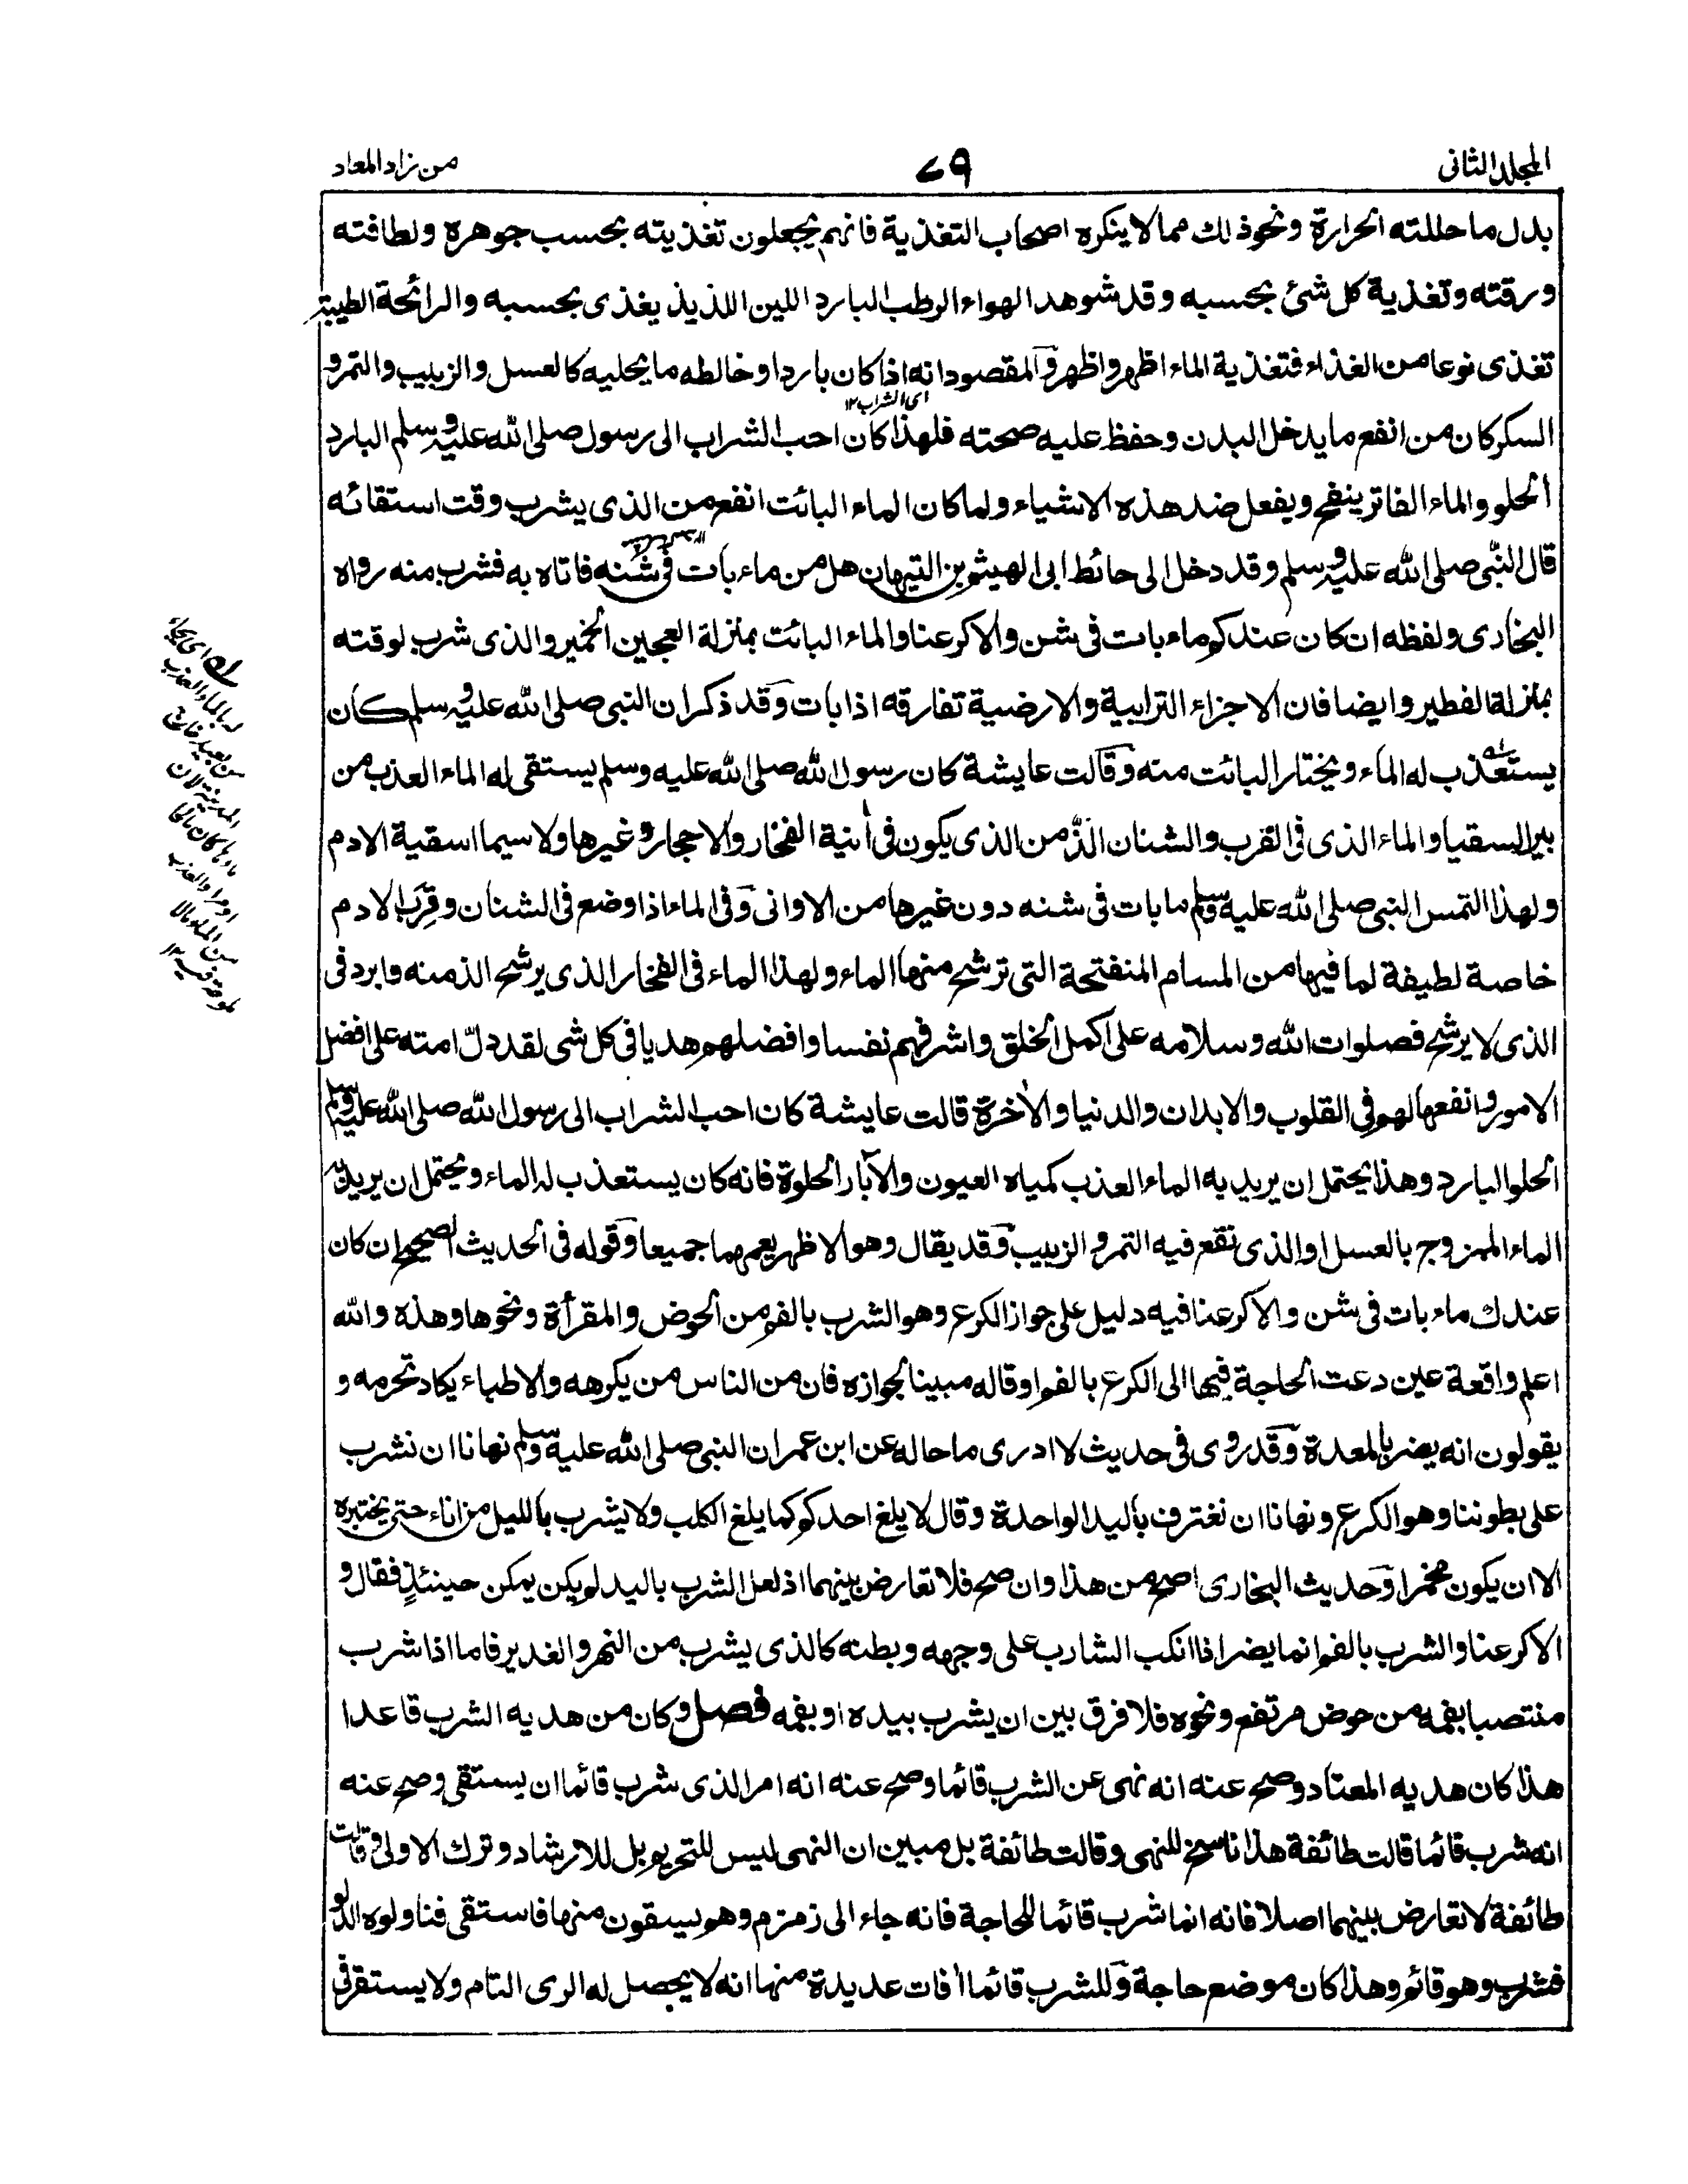 المجلد الثانى
٧٩
من زاد المعاد
بدل ما حللته الحرارة ونحو ذلك مما لا ينكره اصحاب التغذية فانهم يجعلون تغذيته بحسب جوهره ولطافته
ورقته وتغذية كل شئ بحسبه وقد شوهد الهواء الرطب البارد اللين اللذيذ يغذى بحسبه والرائحة الطيبة
تغذى نوعا من الغذاء فتغذية الماء اظهر واظهر والمقصود انه اذا كان باردا وخالطه ما يحليه كالعسل والزبيب والتمر و
اى الشراب ١٢
السكر كان من انفع ما يدخل البدن وحفظ عليه صحته فلهذا كان احب الشراب الى رسول صلى الله عليه وسلم البارد
الحلو والماء الفاتر ينفخ ويفعل ضد هذه الاشياء ولما كان الماء البائت انفع من الذى يشرب وقت استقائه
قال النبى صلى الله عليه وسلم وقد دخل الى حائط ابى الهيثم بن التيهان هل من ماء بات فى شنه فاتاه به فشرب منه رواه
البخارى ولفظه ان كان عندكم ماء بات فى شن والا كرعنا والماء البائت بمنزلة العجين الخمير والذى شرب لوقته
بمنزلة الفطير وايضا فان الاجزاء الترابية والارضية تفارقه اذا بات وقد ذكر ان النبى صلى الله عليه وسلم كان
يستعذب له الماء ويختار البائت منه وقالت عايشة كان رسول الله صلى الله عليه وسلم يستقى له الماء العذب من
بير السقيا والماء الذى فى القرب والشنان الذّ من الذى يكون فى أنية الفخار والاحجار وغيرها ولا سيما اسقية الادم
ولهذا التمس النبى صلى الله عليه وسلم ما بات فى شنه دون غيرها من الاوانى وفى الماء اذا وضع فى الشنان وقرب الادم
خاصة لطيفة لما فيها من المسام المنفتحة التى ترشح منها الماء ولهذا الماء فى الفخار الذى يرشح الذ منه وابرد فى
الذى لا يرشح فصلوات الله وسلامه على اكمل الخلق واشرفهم نفسا وافضلهم هديا فى كل شى لقد دلّ امته على افضل
الامور وانفعها لهم فى القلوب والابدان والدنيا والأخرة قالت عايشة كان احب الشراب الى رسول الله صلى الله عليه وسلم
الحلو البارد وهذا يحتمل ان يريد به الماء العذب كمياه العيون والآبار الحلوة فانه كان يستعذب له الماء ويحتمل ان يريد به
الماء الممزوج بالعسل او الذى نقع فيه التمر و الزبيب وقد يقال وهو الاظهر يعمهما جميعا وقوله فى الحديث الصحيح ان كان
عندك ماء بات فى شن والا كرعنا فيه دليل على جواز الكرع وهو الشرب بالفم من الحوض والمقرأة ونحوها وهذه والله
اعلم واقعة عين دعت الحاجة فيها الى الكرع بالفم او قاله مبينا لجوازه فان من الناس من يكرهه والاطباء يكاد تحرمه و
يقولون انه يضر بالمعدة وقد روى فى حديث لا ادرى ما حاله عن ابن عمر ان النبى صلى الله عليه وسلم نهانا ان نشرب
على بطوننا وهو الكرع ونهانا ان نغترف باليد الواحدة وقال لا يلغ احدكم كما يلغ الكلب ولا يشرب بالليل من اناء حتى يختبره
الا ان يكون مخمرا وحديث البخارى اصح من هذا وان صح فلا تعارض بينهما اذ لعل الشرب باليد لم يكن يمكن حينئذٍ فقال و
الا كرعنا والشرب بالفم انما يضر اذا انكب الشارب على وجهه وبطنه كالذى يشرب من النهر والغدير فاما اذا شرب
منتصبا بفمه من حوض مرتفع ونحوه فلا فرق بين ان يشرب بيده او بفمه فصل وكان من هديه الشرب قاعدا
هذا كان هديه المعتاد وصح عنه انه نهى عن الشرب قائما وصح عنه انه امر الذى شرب قائما ان يستقى وصح عنه
انه شرب قائما قالت طائفة هذا ناسخ للنهى وقالت طائفة بل مبين ان النهى ليس للتحريم بل للارشاد وترك الاولى وقالت
طائفة لا تعارض بينهما اصلا فانه انما شرب قائما للحاجة فانه جاء الى زمزم وهم يسقون منها فاستقى فناولوه الدلو
فشرب وهو قائم وهذا كان موضع حاجة وللشرب قائما أفات عديدة منها انه لا يحصل له الرى التام ولا يستقر فى